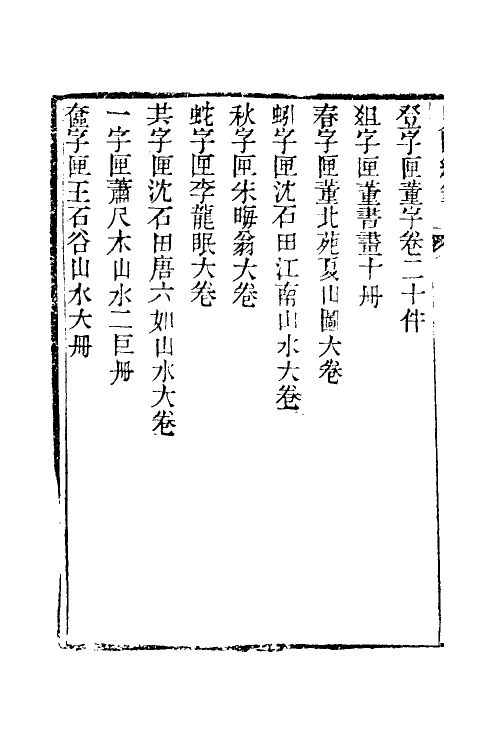 登字匣董字卷二十件
俎字匣董書畫十冊
春字匣董北苑夏山圖大卷
蚓字匣沈石田江南山水大卷
秋字匣朱晦翁大卷
蛇字匣李龍眠大卷
共字匣沈石田唐六如山水大卷
一字匣蕭尺木山水二巨冊
奩字匣王石谷山水大冊